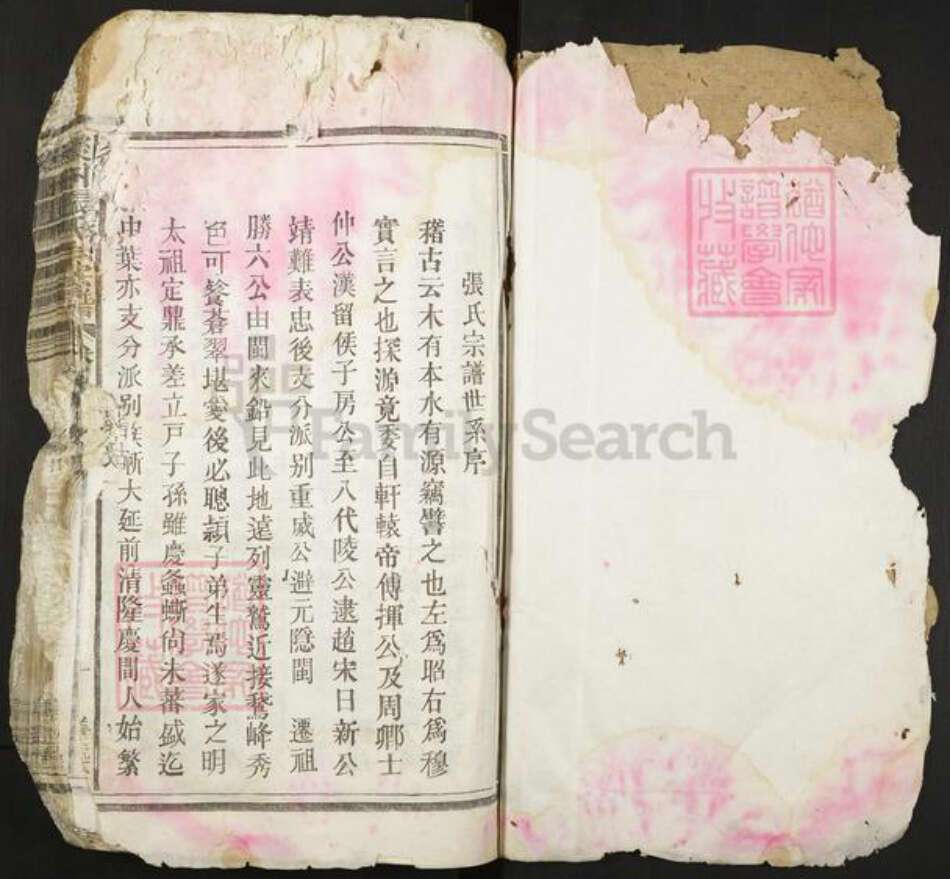 張氏宗譜世系序
稽古云木有本水有源竊譬之也左爲昭右爲穆
實言之也探源竟委自軒轅帝傳揮公及周卿士
仲公漢留侯子房公至八代陵公逮趙宋日新公
靖難表忠後支分派别重威公避元隱閩 遷祖
勝六公由閩來鉛見此地遠列靈鷲近接鵞峰秀
色可餐蒼翠堪愛後必聰頴子弟生焉遂家之明
太祖定鼎承差立戸子孫雖慶螽嘶尙未蕃盛迄
中葉亦支分派别族漸大延前清隆慶間人始繁
譜學會
收藏
FamilySearch